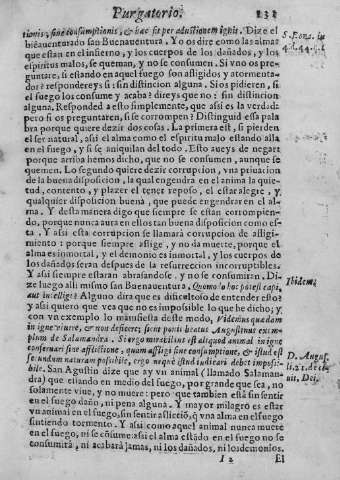 Purgatorio. 131
tionis, sine consumptionis, & hac fit per adustionem ignis. Dize el
bieauenturado san Buenauentura. Y os dire como las almas
que estan en el infierno, y los cuerpos de los dañados, y los
espiritus malos, se queman, y no se consumen. Si vno os pre-
guntare, si estando en aquel fuego son afligidos y atormenta-
dos? respondereys si: sin distincion alguna. Si os pidieren, si
el fuego los consume y acaba? direys que no: sin distincion
alguna. Responded a esto simplemente, que assi es la verdad
pero si os preguntaren, si se corrompen? Distinguid essa pala
bra porque quiere dezir dos cosas. La primera est, si pierden
el ser natural, assi el alma como el espiritu malo estando alla
en el fuego, y si se aniquilan del todo. Esto aueys de negar:
porque arriba hemos dicho, que no se consumen, aunque se
quemen. Lo segundo quiere dezir corrupcion, vna priuacion
de la buena disposicion, la qual engendra en el anima la quie-
tud, contento, y plazer el tener reposo, el estar alegre, y
qualquier disposicion buena, que puede engendrar en el al-
ma. Y desta manera digo que siempre se estan corrompien-
do, porque nunca aura en ellos tan buena disposicion como es-
ta. Y assi esta corrupcion se llamarà corrupcion de afligi-
miento: porque siempre aflige, y no da muerte, porque el
alma es inmortal, y el demonio es inmortal, y los cuerpos de
los dañados seràn despues de la resurreccion incorruptibles.
Y assi siempre estaràn abrasandose. Y no se consumiràn. Di-
ze luego alli mismo san Buenauentura, Quomodo hoc potest capi,
aut intelligi? Alguno dira que es dificultoso de entender esto?
y assi quiero que vea que no es impossible lo que he dicho; y
con vn exemplo lo manifiesta deste modo, Videmus quædam
in igne viuere, & non deficere; sicut ponit beatus Augustinus exem-
plum de Salamandra. Si ergo mirabilius est aliquod animal in igne
conseruari sine afflictione, quam affligi sine consumptione, & istud est
secundum naturam possibile, ergo neque istud iudicari debet impossi-
bile. San Agustin dize que ay vn animal (llamado Salaman-
dra) que estando en medio del fuego, por grande que sea, no
solamente viue, y no muere: pero que tambien està sin sentir
en el fuego daño, ni pena alguna. Y mayor milagro es estar
vn animal en el fuego, sin sentir afliciõ, q̃ vna alma en el fuego
sintiendo tormento. Y assi como aquel animal nunca muere
en el fuego, ni se cõsume: assi el alma estado en el fuego no se
consumirà, ni acabarà jamas, ni los dañados, ni los demonios.
I 2 El
S. Bona. in
4. d. 44.
Ibidem.
D. Augus.